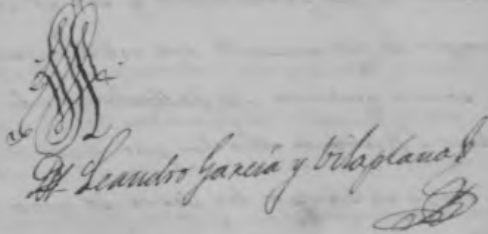 Leandro García y Vilaplana